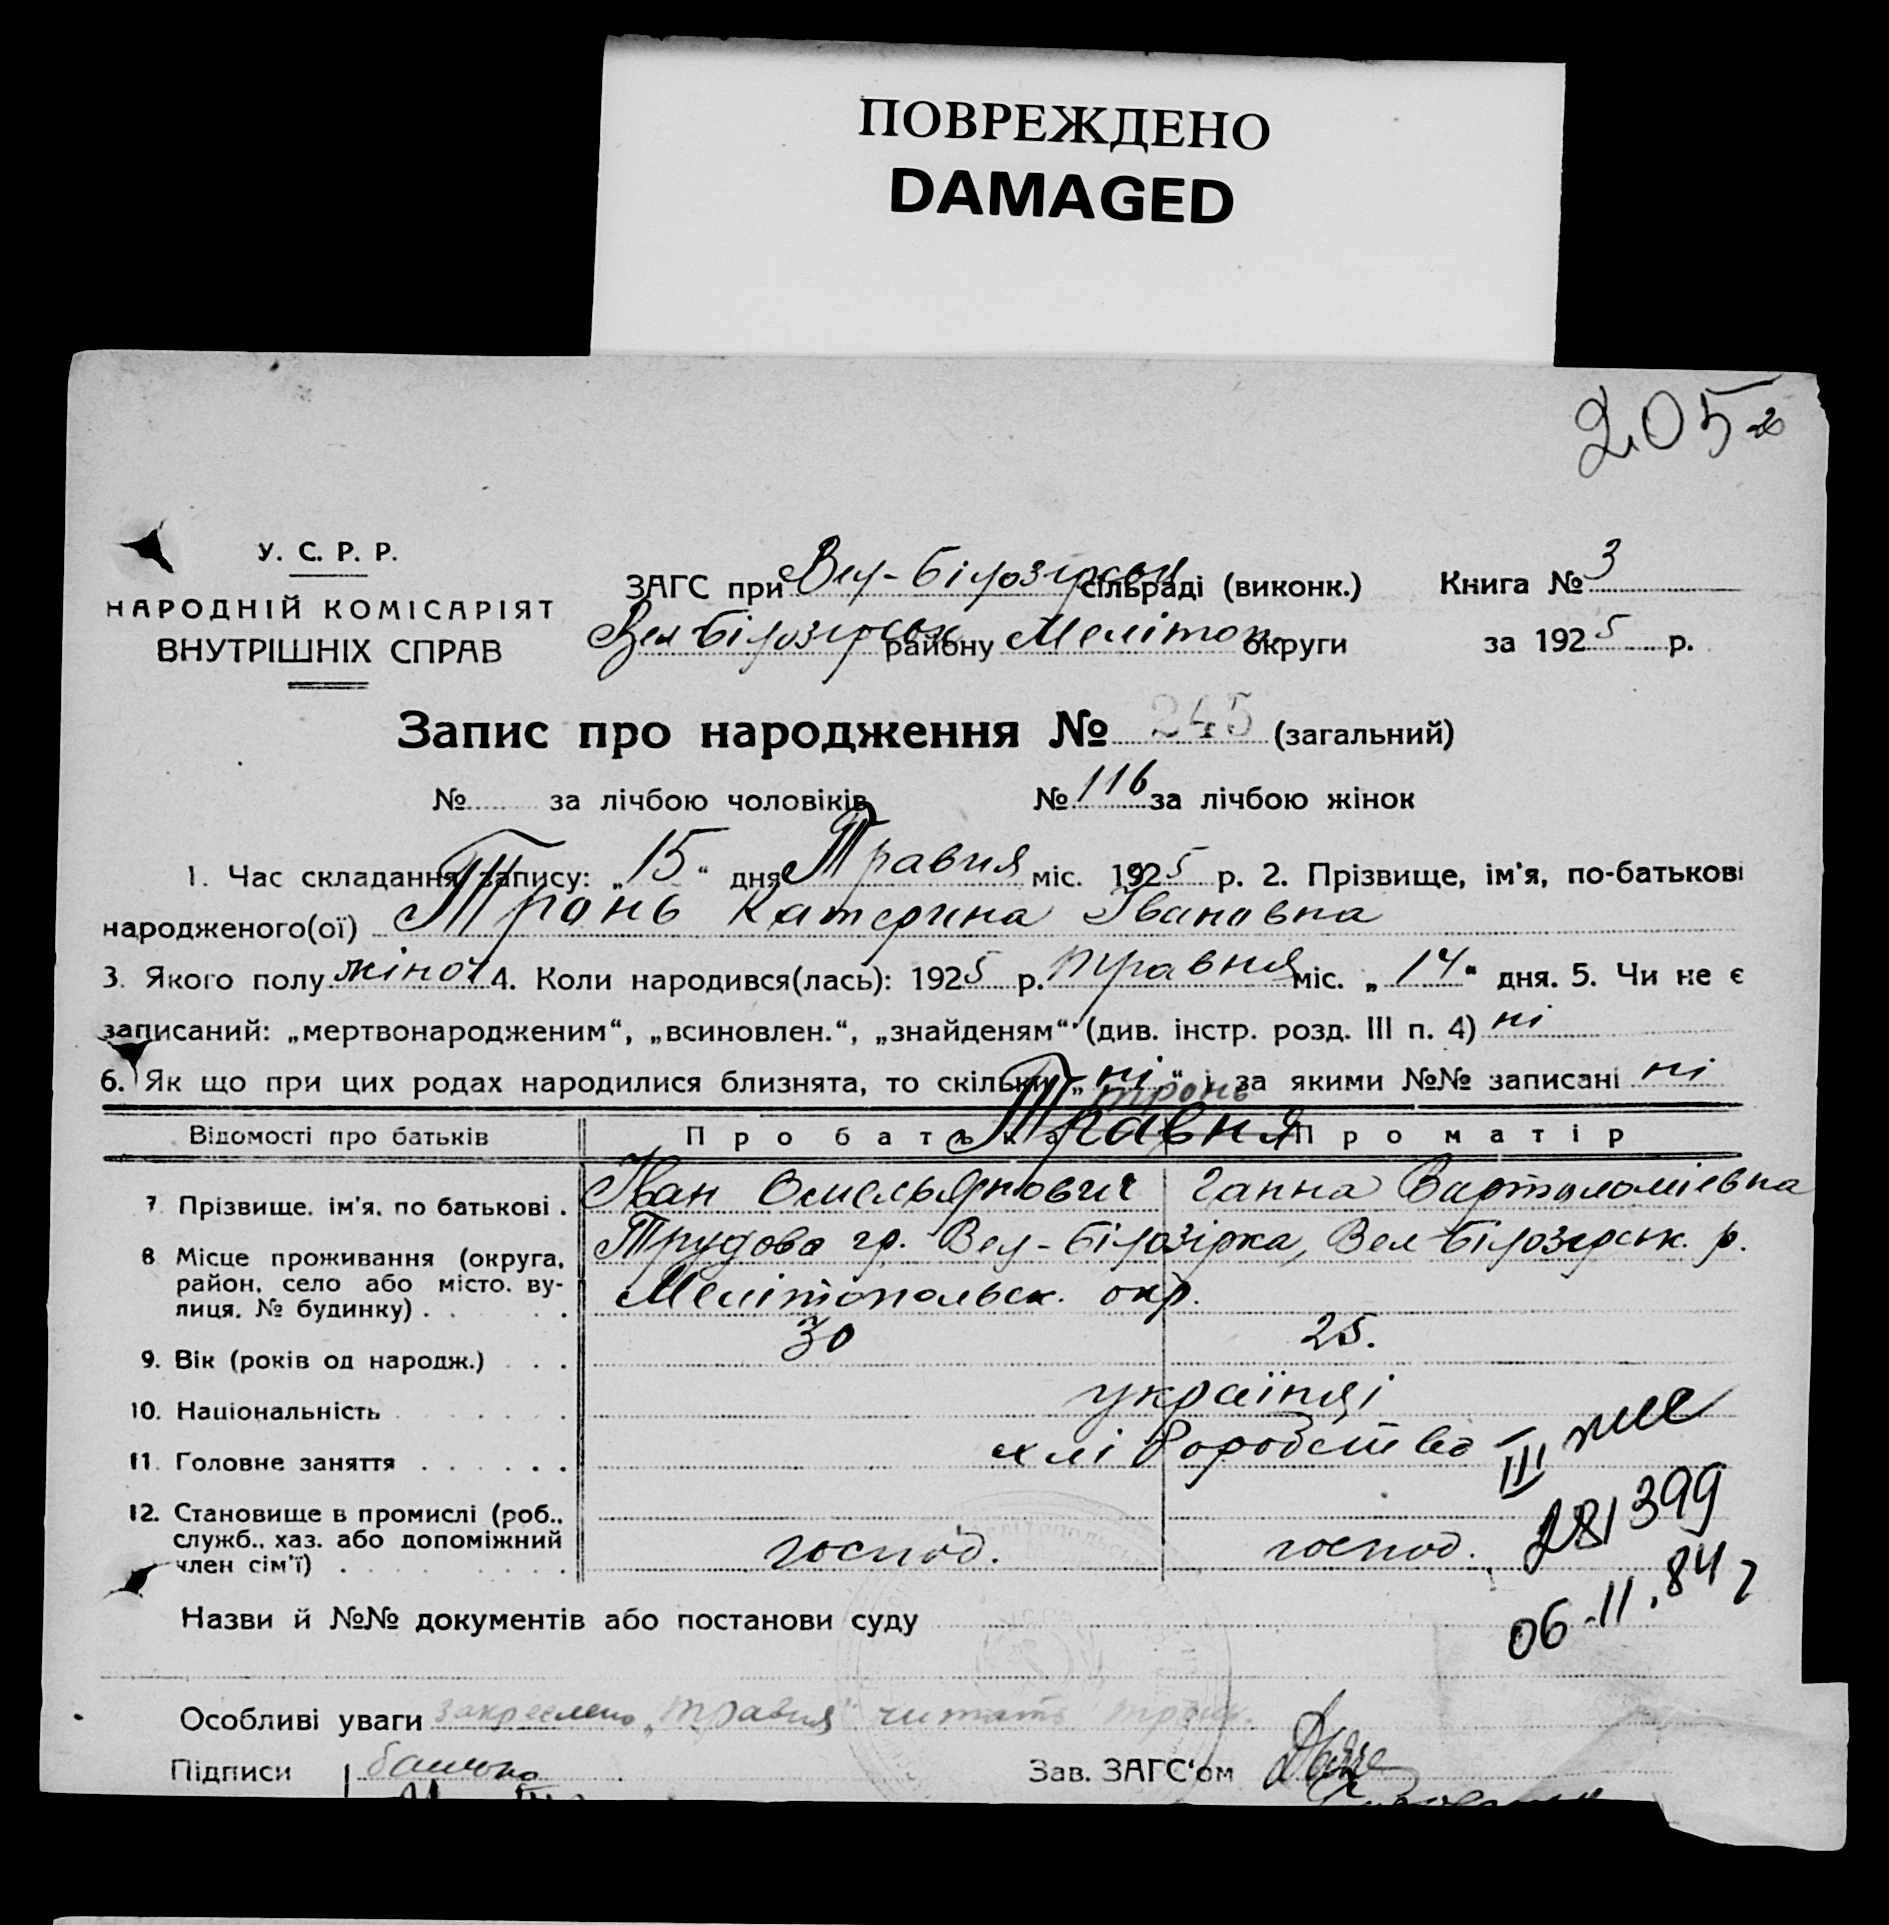 ПОВРЕЖДЕНО
DAMAGED
205
У. С. Р. Р.
НАРОДНІЙ КОМІСАРІЯТ
ВНУТРІШНІХ СПРАВ
ЗАГС при Вел-Білозірськ сільраді (виконк.) Книга № 3
Вел Білозірськ району Мелітоп. округи за 1925 р.
Запис про народження № 245 (загальний)
№ за лічбою чоловіків № 116 за лічбою жінок
1. Час складання запису: „15“ дня Травня міс. 1925 р. 2. Прізвище, ім'я, по-батькові
народженого(ої) Тронь Катерина Івановна
3. Якого полу жіноч 4. Коли народився(лась): 1925 р. травня міс. „14“ дня. 5. Чи не є
записаний: „мертвонародженим“, „всиновлен.“, „знайденям“ (див. інстр. розд. III п. 4) ні
6. Як що при цих родах народилися близнята, то скільки „ні“ і за якими №№ записані ні
тронь
Травня
Відомості про батьків Про батька Про матір
7 Прізвище, ім'я, по батькові . Іван Омельянович Ганна Вартоломіевна
8 Місце проживання (округа, район, село або місто, вулиця, № будинку) . . . Трудова гр. Вел-Білозірка, Вел Білозірськ. р.
Мелітопольск. окр.
9. Вік (років од народж.) . . . 30 25.
10. Національність українці
11. Головне заняття хліборобство
12. Становище в промислі (роб., служб., хаз. або допоміжний член сім'ї) господ. господ.
III
281399
06.11.84 г
Назви й №№ документів або постанови суду
Особливі уваги закреслено „травня“ читать тронь.
Підписи батько Зав. ЗАГС'ом